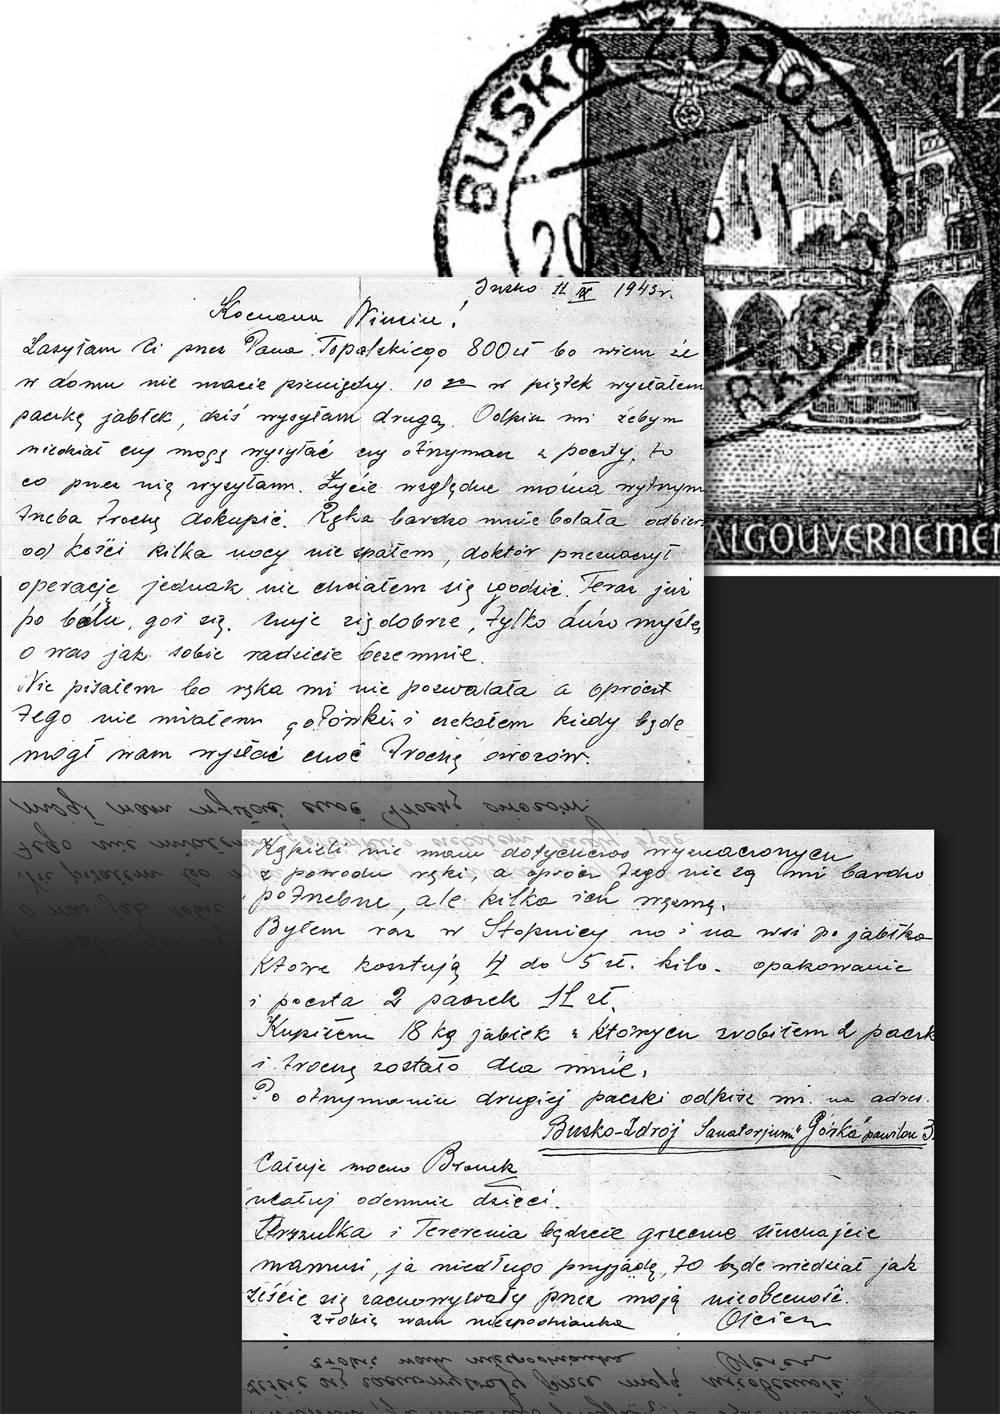 BUSKO ZDRÓJ
12
20
ALGOUVERNEMEN
Busko 11 IX 1943r.
Kochana Niusiu!
Zasyłam Ci przez Pana Topalskiego 800 zł bo wiem że
w domu nie macie pieniędzy. 10 go w piątek wysłałem
paczkę jabłek, dziś wysyłam drugą. Odpisz mi żebym
wiedział czy mogę wysyłać czy otrzymasz z poczty, to
co przez nią wysyłam. Życie względne można wytrzym
trzeba trochę dokupić. Ręka bardzo mnie bolała
od kości kilka nocy nie spałem, doktór przeznaczył
operację jednak nie chciałem się zgodzić. Teraz już
po bólu, goi się. czuje się dobrze, tylko dużo myślę
o was jak sobie radzicie bezemnie.
Nie pisałem bo ręka mi nie pozwalała a oprócz
tego nie miałem gotówki i czekałem kiedy będe
mógł wam wysłać choć trochę owoców.
Kąpieli nie mam dotychczas wyznaczonych
z powodu ręki, a oprócz tego nie są mi bardzo
potrzebne, ale kilka ich wezmę.
Byłem raz w Stopnicy no i na wsi po jabłka
które kosztują 4 do 5 zł. kilo. opakowanie
i poczta 2 paczek 11 zł.
Kupiłem 18 kg jabłek z których zrobiłem 2 paczk
i trochę zostało dla mnie.
Po otrzymaniu drugiej paczki odpisz mi. na adres.
Busko-Zdrój Sanatorjum "Górka" pawilon 3.
Całuje mocno Bronek
ucałuj odemnie dzieci.
Urszulka i Terenia będzcie grzeczne słuchajcie
mamusi, ja niedługo przyjadę, to będe wiedział jak
żeście się zachowywały przez moją nieobecność.
zrobię wam niespodzianke Ojciec